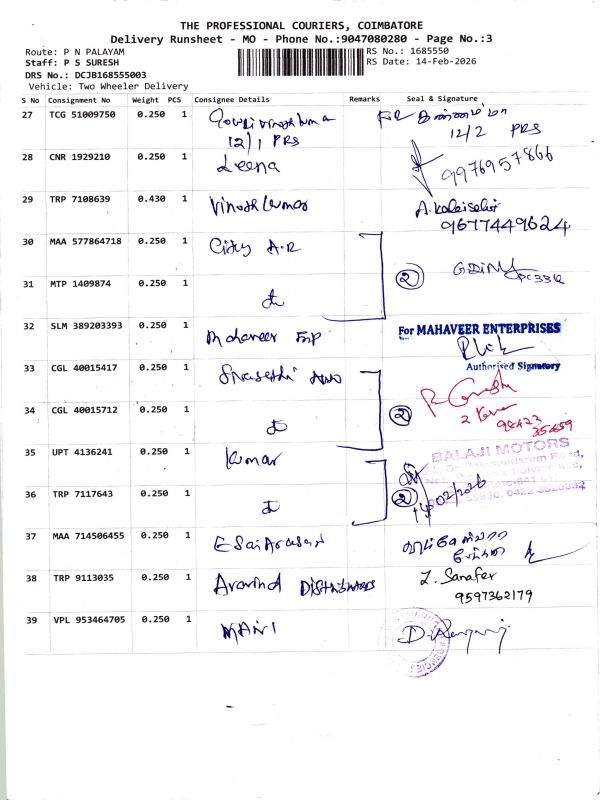 THE PROFESSIONAL COURIERS, COIMBATORE
Delivery Runsheet - MO - Phone No.:9047080280 - Page No.:3
Route: P N PALAYAM
RS No.: 1685550
Staff: P S SURESH
RS Date: 14-Feb-2026
DRS No.: DCJB168555003
Vehicle: Two Wheeler Delivery
S No Consignment No Weight PCS Consignee Details Remarks Seal & Signature
27 TCG 51009750 0.250 1
12/1 PRS 12/2 PRS
28 CNR 1929210 0.250 1 Leena 9976957866
29 TRP 7108639 0.430 1 Vinoth Kumar A. Kalaiselvi
9677449624
30 MAA 577864718 0.250 1 City A.R
2
31 MTP 1409874 0.250 1
32 SLM 389203393 0.250 1 Mahaveer For MAHAVEER ENTERPRISES
Authorised Signatory
33 CGL 40015417 0.250 1
2
34 CGL 40015712 0.250 1
35 UPT 4136241 0.250 1 Kumar BALAJI MOTORS
2
36 TRP 7117643 0.250 1 14/02/2026
37 MAA 714506455 0.250 1 ESaiArasan
38 TRP 9113035 0.250 1 Aravind Distributors Z. Sanafer
9597362179
39 VPL 953464705 0.250 1 MANI